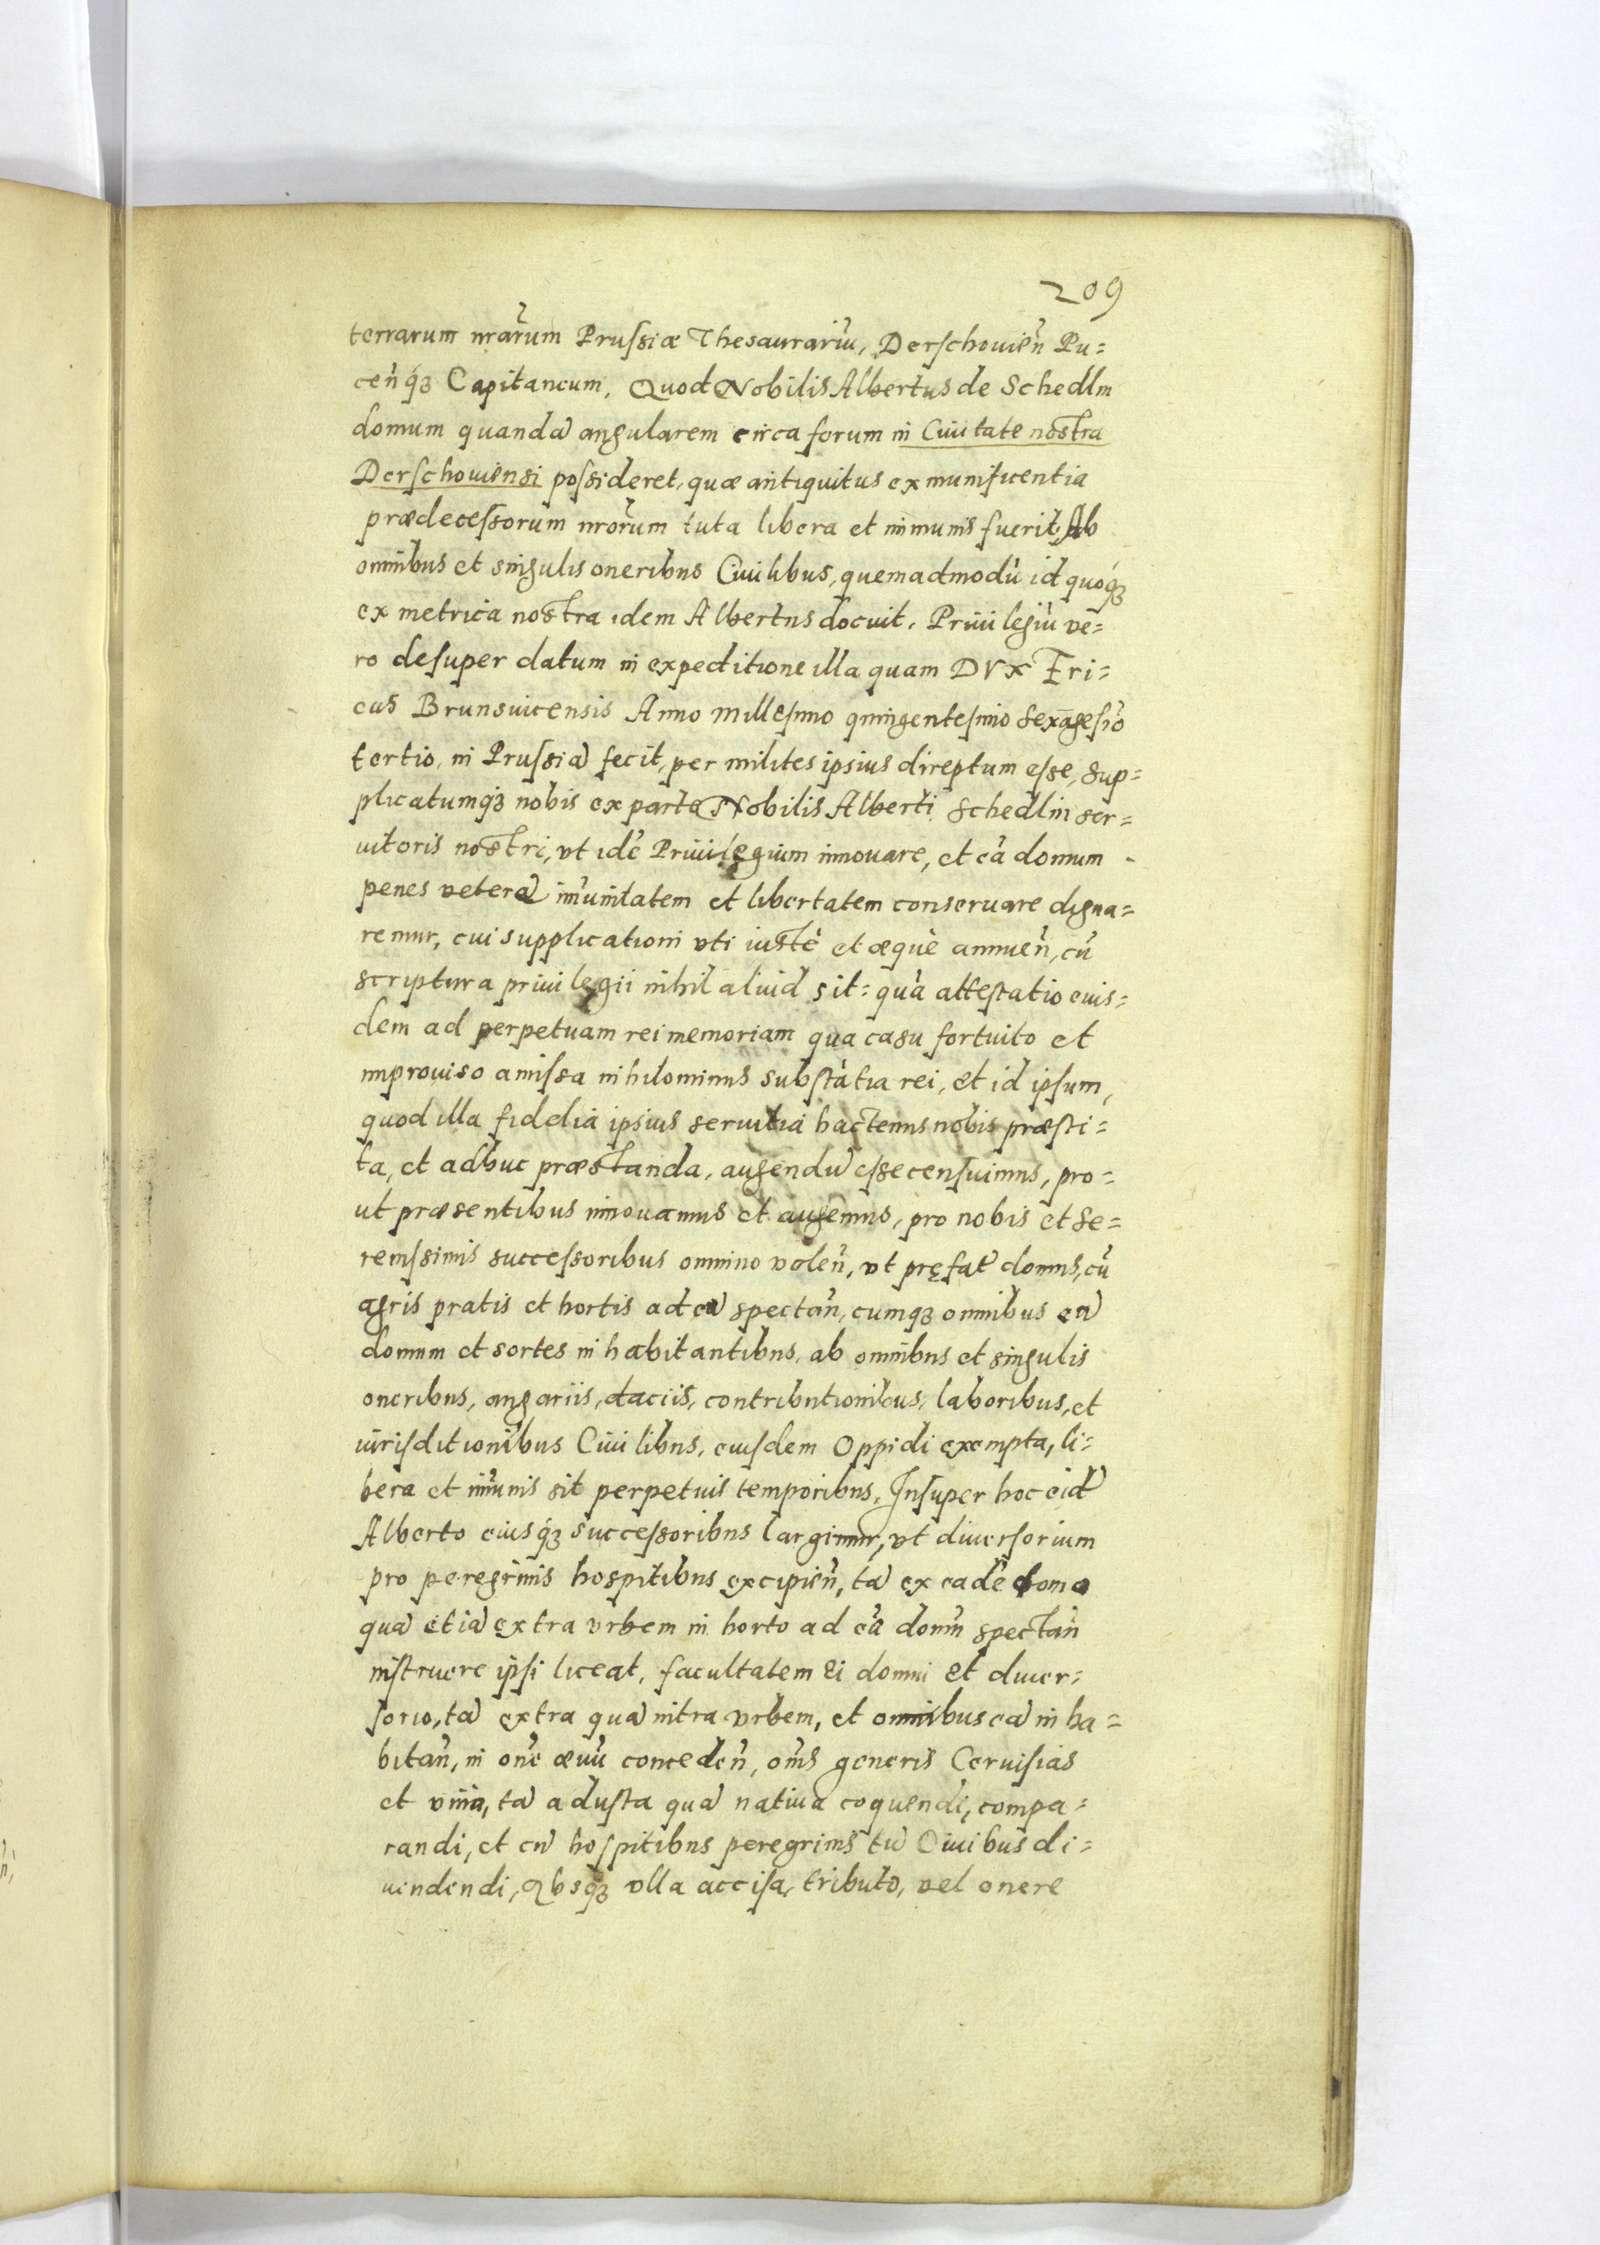 209
terrarum nrãrum Prussiæ Thesaurariũ, Derschouień Pu=
ceńq́ꝫ Capitaneum, Quod Nobilis Albertus de Schedlin
domum quandã angularem circa forum in Ciuitate nostra
Derschouiensi possideret, quæ antiquitus ex munificentia
prædecessorum nrõrum tuta libera et immunis fuerit, Ab
omnibus et singulis oneribus Ciuilibus, quemadmodũ id quoq́ꝫ
ex metrica nostra idem Albertus docuit, Priuilegiũ ve=
ro desuper datum in expeditione illa quam DVX Eri=
cus Brunsuicensis Anno millesimo quingentesimo sexagesiõ
tertio, in Prussiã fecit, per milites ipsius direptum esse, sup=
plicatumq́ꝫ nobis ex parte Nobilis Alberti Schedlin ser=
uitoris nostri, vt idẽ Priuilegium innouare, et eã domum
penes veterẽ im̃unitatem et libertatem conseruare digna=
remur, cui supplicationi vti iustè et æquè annueń, cũ
scriptura priuilegii nihil aliud sit= quã attestatio euis=
dem ad perpetuam rei memoriam qua casu fortuito et
improuiso amissa nihilominus substãtia rei, et id ipsum,
quod illa fidelia ipsius seruitia hactenus nobis præsti=
ta, et adhuc præstanda, augendũ esse censuimus, pro=
ut præsentibus innouamus et augemus, pro nobis et Se=
renissimis successoribus omnino voleń, vt pręfat̃ domus, cũ
agris pratis et hortis ad eã spectań, cumqꝫ omnibus eã
domum et sortes inhabitantibus, ab omnibus et singulis
oneribus, angariis, daciis, contributionibus, laboribus, et
iurisditionibus Ciuilibus, eiusdem Oppidi exempta, li=
bera et im̃unis sit perpetuis temporibus, Insuper hoc eid̃
Alberto eiusq́ꝫ successoribus largimur, vt diuersorium
pro peregrinis hospitibus excipień, tã ex eadẽ domo
quã etiã extra vrbem in horto ad eã domũ spectań
instruere ipsi liceat, facultatem Ei domui et diuer=
sorio, tã extra quã intra vrbem, et omnibus eã inha=
bitań, in om̃e æuũ concedeń, om̃s generis Ceruisias
et vina, tã adusta quã natiua coquendi, compa=
randi, et cũ hospitibus peregrinis tũ Ciuibus di=
uendendi, Absq́ꝫ vlla accisa, tributo, vel onere